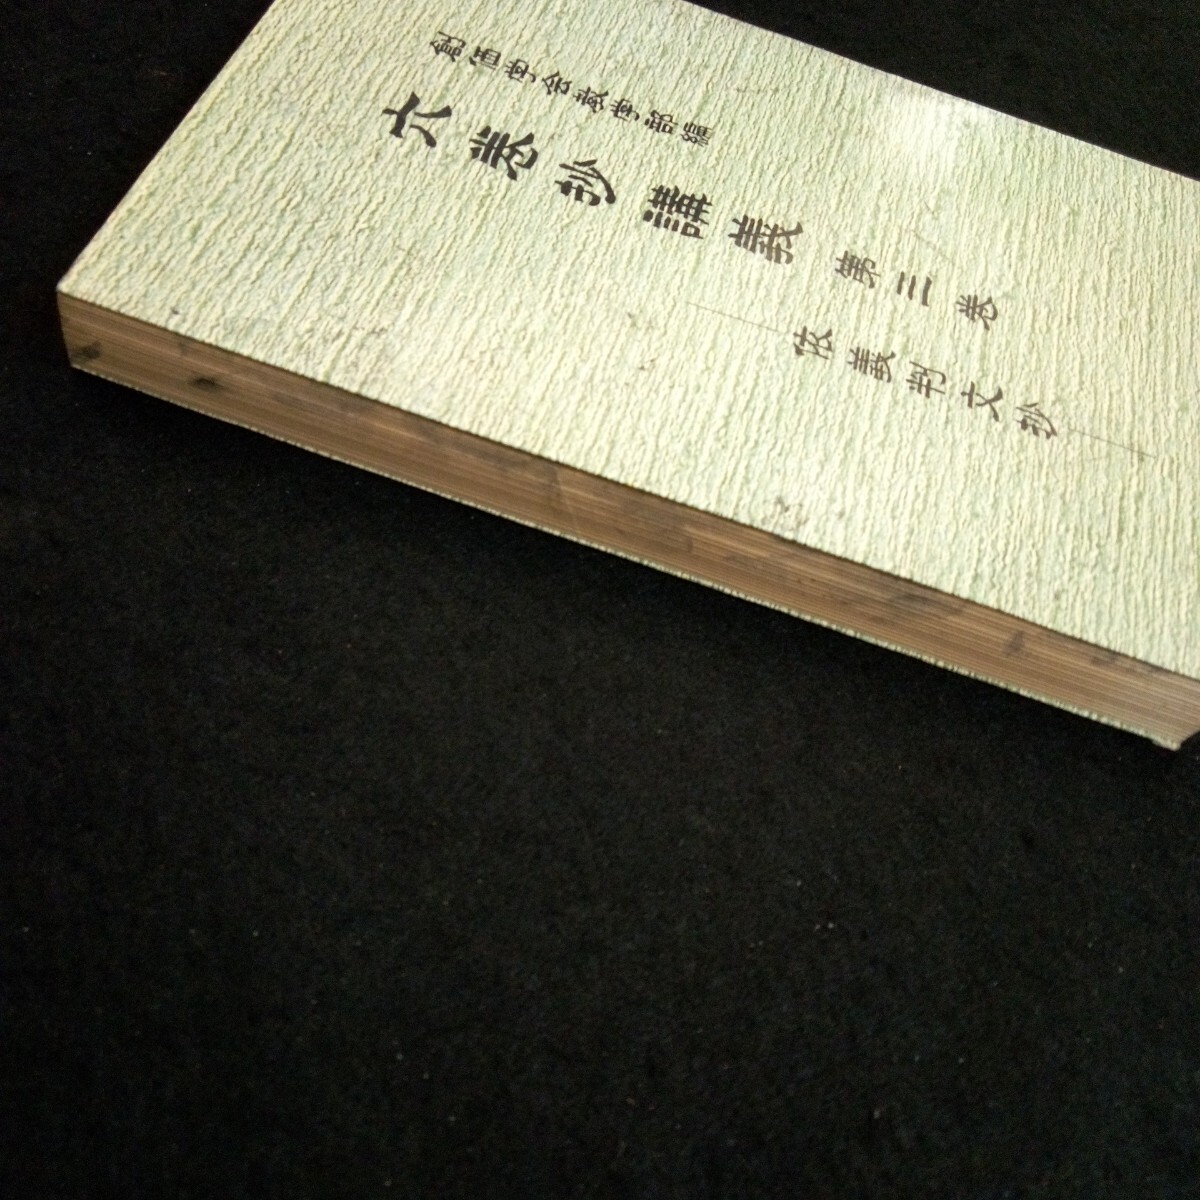 創価学会教学部編
六巻抄講義 第三巻
依義判文抄